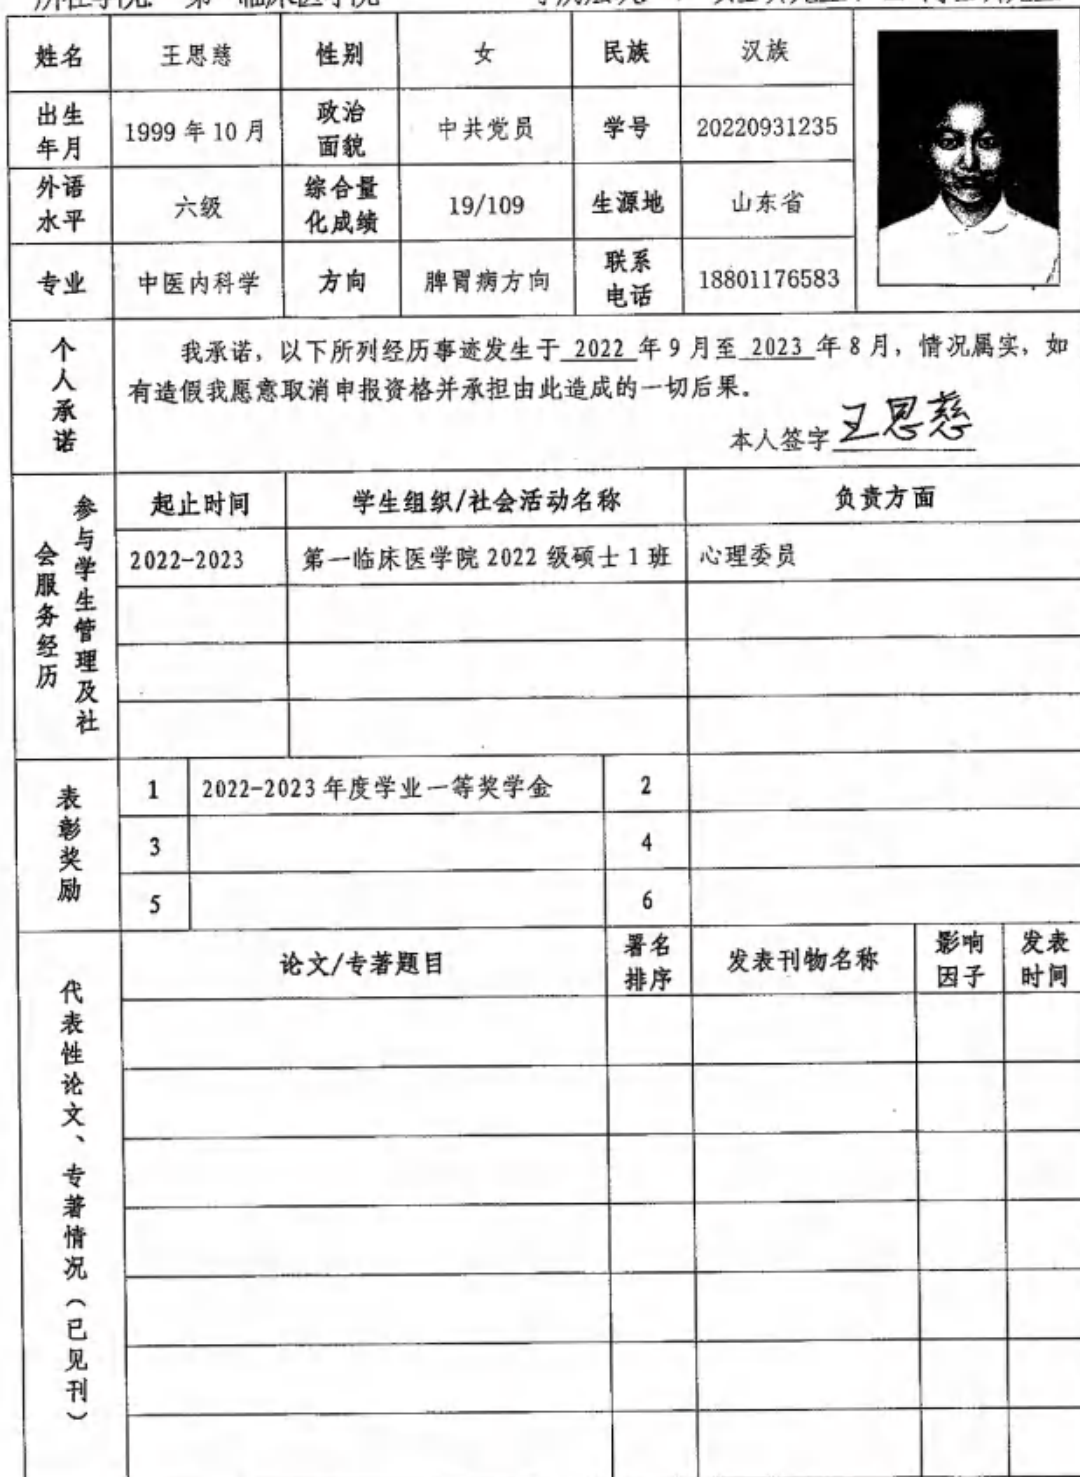 姓名 王思慈 性别 女 民族 汉族
出生年月 1999年10月 政治面貌 中共党员 学号 20220931235
外语水平 六级 综合量化成绩 19/109 生源地 山东省
专业 中医内科学 方向 脾胃病方向 联系电话 18801176583
个人承诺
我承诺，以下所列经历事迹发生于 2022 年9月至 2023 年8月，情况属实，如
有造假我愿意取消申报资格并承担由此造成的一切后果。
本人签字 王思慈
参与学生管理及社会服务经历
起止时间 学生组织/社会活动名称 负责方面
2022-2023 第一临床医学院2022级硕士1班 心理委员
表彰奖励
1 2022-2023年度学业一等奖学金 2
3 4
5 6
代表性论文、专著情况（已见刊）
论文/专著题目 署名排序 发表刊物名称 影响因子 发表时间